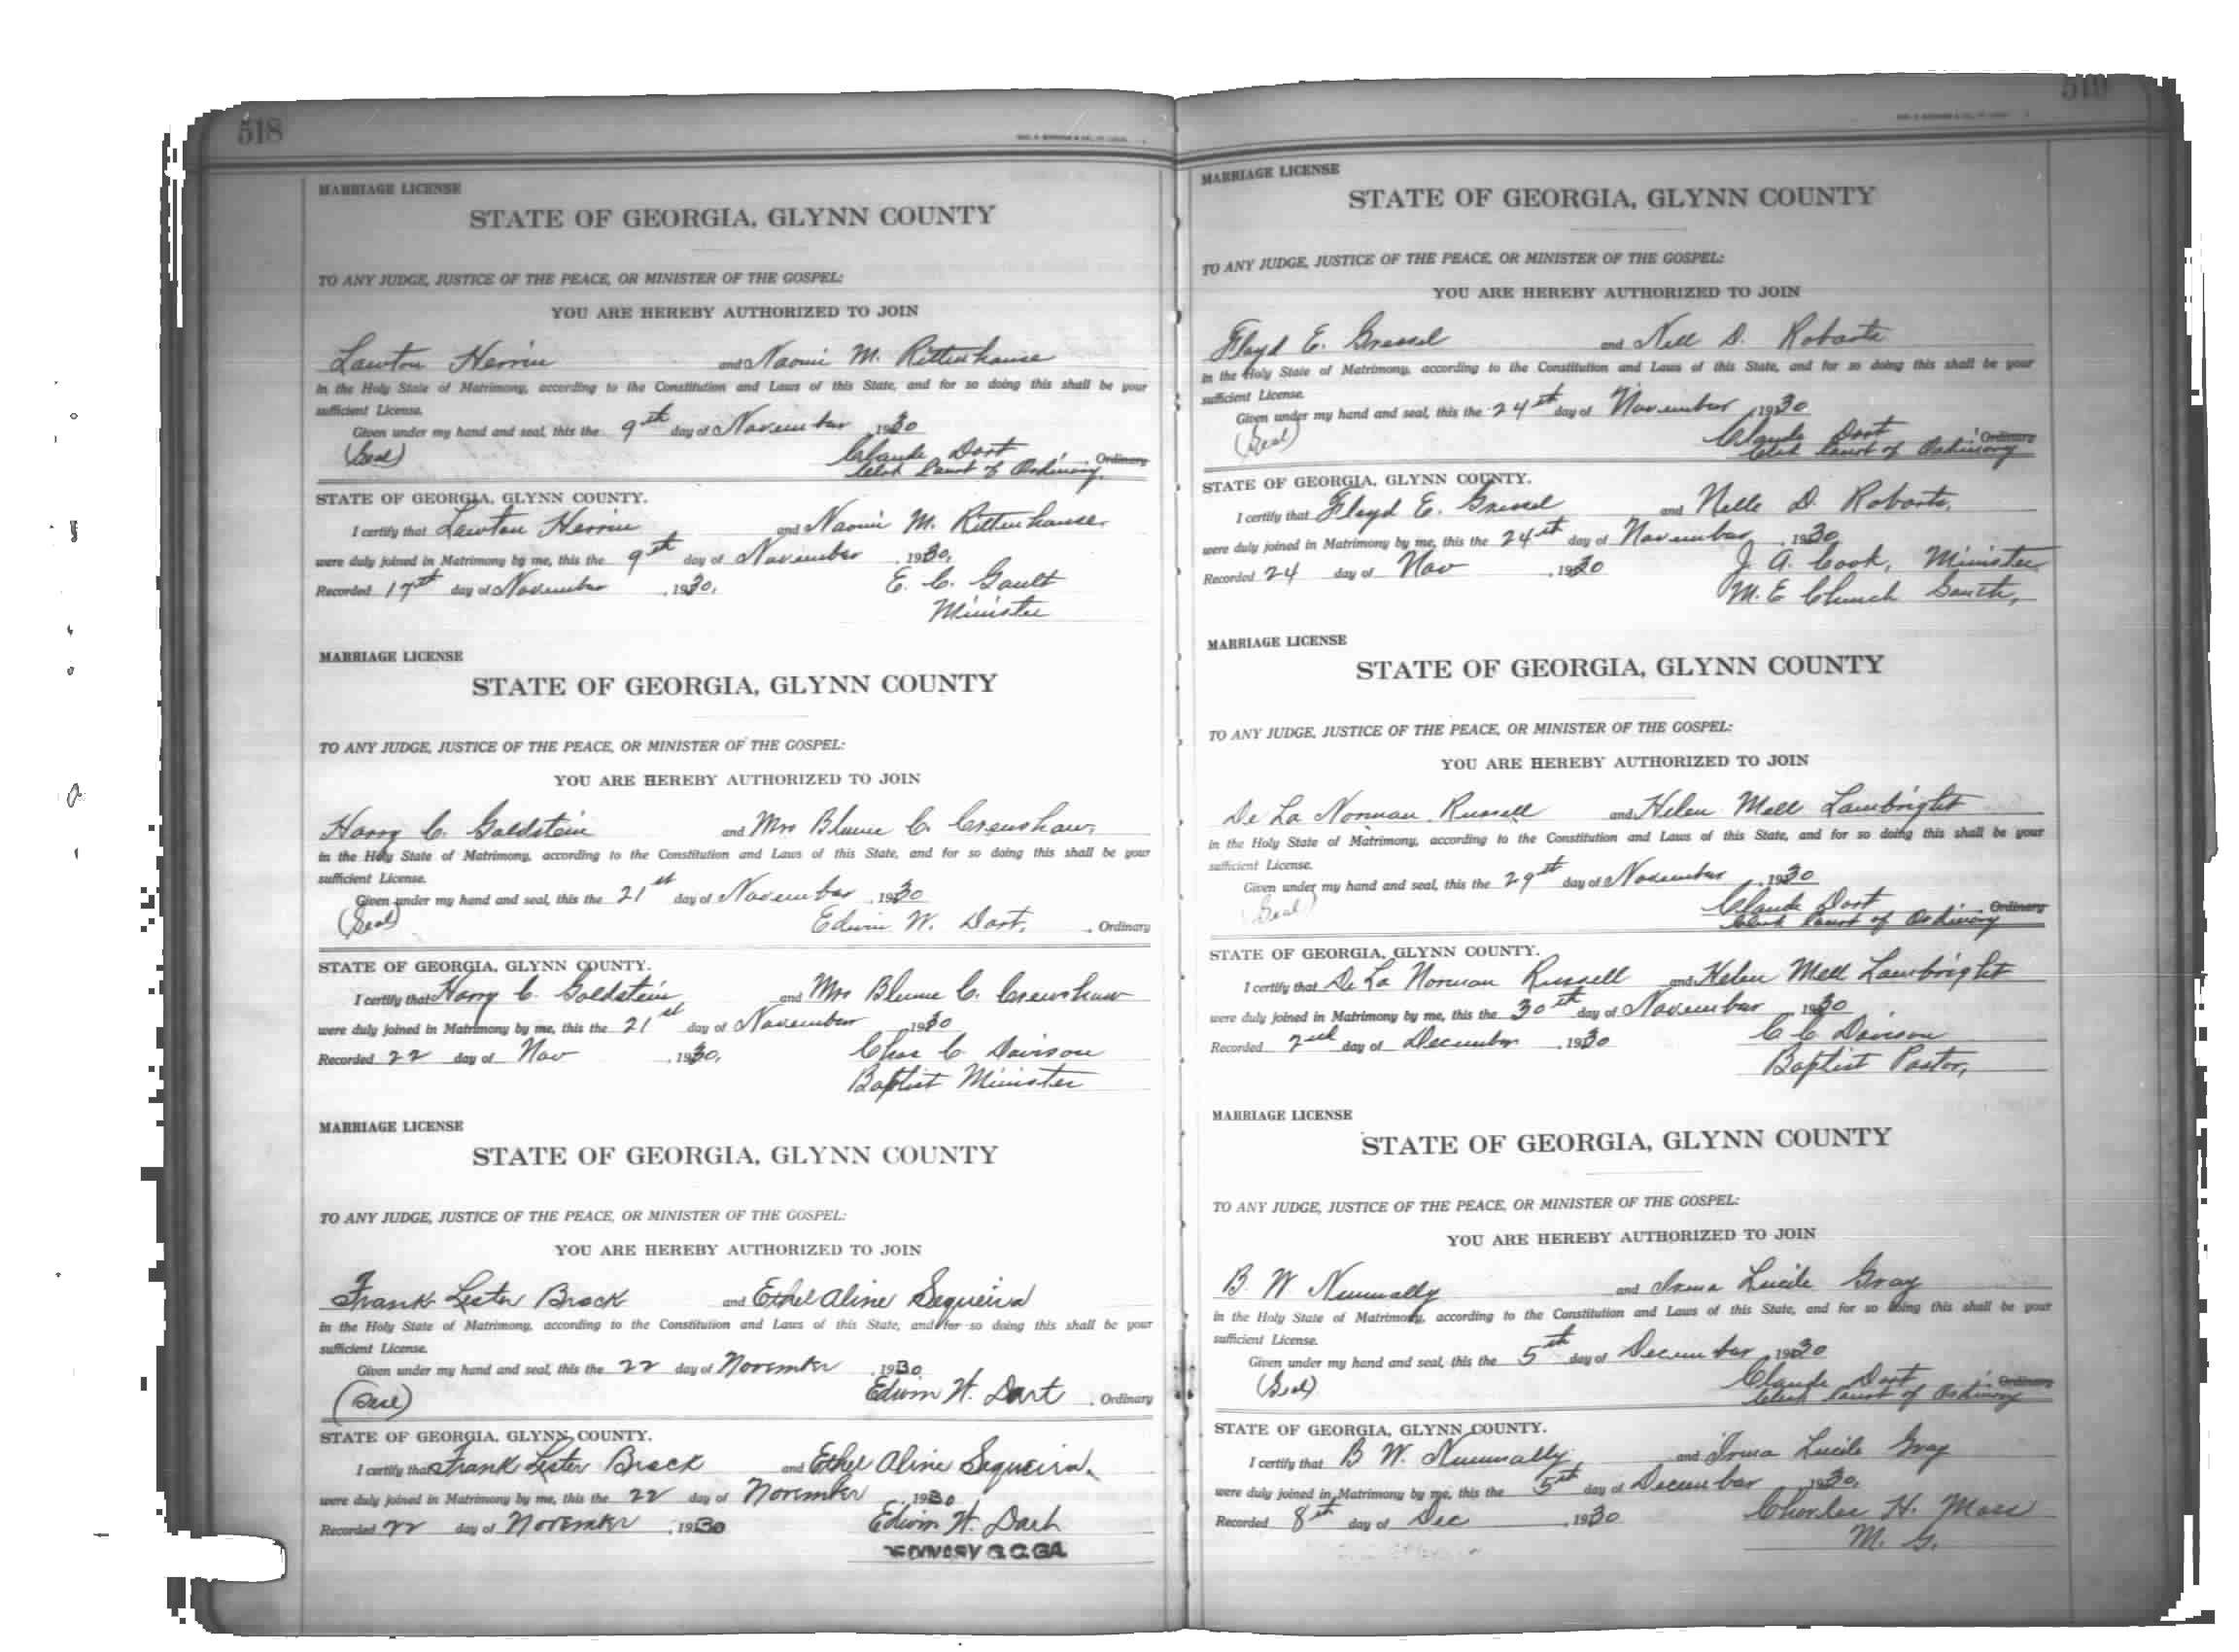 518
MARRIAGE LICENSE
STATE OF GEORGIA, GLYNN COUNTY
TO ANY JUDGE, JUSTICE OF THE PEACE, OR MINISTER OF THE GOSPEL:
YOU ARE HEREBY AUTHORIZED TO JOIN
Lawton Herrin and Naomi M. Rittenhouse
in the Holy State of Matrimony, according to the Constitution and Laws of this State, and for so doing this shall be your
sufficient License.
Given under my hand and seal, this the 9th day of November 1930
(Seal) Claude Dart Ordinary
Clerk Court of Ordinary.
STATE OF GEORGIA, GLYNN COUNTY.
I certify that Lawton Herrin and Naomi M. Rittenhouse.
were duly joined in Matrimony by me, this the 9th day of November, 1930,
Recorded 17th day of November, 1930, E. C. Gault
Minister
MARRIAGE LICENSE
STATE OF GEORGIA, GLYNN COUNTY
TO ANY JUDGE, JUSTICE OF THE PEACE, OR MINISTER OF THE GOSPEL:
YOU ARE HEREBY AUTHORIZED TO JOIN
Harry C. Goldstein and Mrs Blume C. Crenshaw,
in the Holy State of Matrimony, according to the Constitution and Laws of this State, and for so doing this shall be your
sufficient License.
Given under my hand and seal, this the 21st day of November, 1930
(Seal) Edwin W. Dart, Ordinary
STATE OF GEORGIA, GLYNN COUNTY.
I certify that Harry C. Goldstein and Mrs Blume C. Crenshaw
were duly joined in Matrimony by me, this the 21st day of November, 1930
Recorded 22 day of Nov, 1930, Chas C. Davison
Baptist Minister
MARRIAGE LICENSE
STATE OF GEORGIA, GLYNN COUNTY
TO ANY JUDGE, JUSTICE OF THE PEACE, OR MINISTER OF THE GOSPEL:
YOU ARE HEREBY AUTHORIZED TO JOIN
Frank Lester Brock and Ethel Aline Sequeira
in the Holy State of Matrimony, according to the Constitution and Laws of this State, and for so doing this shall be your
sufficient License.
Given under my hand and seal, this the 22 day of November, 1930
(Seal) Edwin W. Dart, Ordinary
STATE OF GEORGIA, GLYNN COUNTY.
I certify that Frank Lester Brock and Ethel Aline Sequeira.
were duly joined in Matrimony by me, this the 22 day of November, 1930
Recorded 22 day of November, 1930 Edwin W. Dart
G.C.GA.
519
MARRIAGE LICENSE
STATE OF GEORGIA, GLYNN COUNTY
TO ANY JUDGE, JUSTICE OF THE PEACE, OR MINISTER OF THE GOSPEL:
YOU ARE HEREBY AUTHORIZED TO JOIN
Floyd E. and Nell D. Robarts
in the Holy State of Matrimony, according to the Constitution and Laws of this State, and for so doing this shall be your
sufficient License.
Given under my hand and seal, this the 24st day of November, 1930
(Seal) Claude Dart Ordinary
Clerk Court of Ordinary
STATE OF GEORGIA, GLYNN COUNTY.
I certify that Floyd E. and Nelle D. Robarts,
were duly joined in Matrimony by me, this the 24st day of November, 1930,
Recorded 24 day of Nov, 1930 J. A. Cook, Minister
M. E Church South,
MARRIAGE LICENSE
STATE OF GEORGIA, GLYNN COUNTY
TO ANY JUDGE, JUSTICE OF THE PEACE, OR MINISTER OF THE GOSPEL:
YOU ARE HEREBY AUTHORIZED TO JOIN
De La Norman Russell and Helen Mell Lambright
in the Holy State of Matrimony, according to the Constitution and Laws of this State, and for so doing this shall be your
sufficient License.
Given under my hand and seal, this the 29th day of November, 1930
(Seal) Claude Dart Ordinary
Clerk Court of Ordinary
STATE OF GEORGIA, GLYNN COUNTY.
I certify that De La Norman Russell and Helen Mell Lambright
were duly joined in Matrimony by me, this the 30th day of November, 1930
Recorded 2nd day of December, 1930 C C Davison
Baptist Pastor,
MARRIAGE LICENSE
STATE OF GEORGIA, GLYNN COUNTY
TO ANY JUDGE, JUSTICE OF THE PEACE, OR MINISTER OF THE GOSPEL:
YOU ARE HEREBY AUTHORIZED TO JOIN
B. W Nunnally and Irma Lucile Gray
in the Holy State of Matrimony, according to the Constitution and Laws of this State, and for so doing this shall be your
sufficient License.
Given under my hand and seal, this the 5th day of December, 1930
(Seal) Claude Dart Ordinary
Clerk Court of Ordinary
STATE OF GEORGIA, GLYNN COUNTY.
I certify that B W. Nunnally and Irma Lucile Gray
were duly joined in Matrimony by me, this the 5th day of December, 1930,
Recorded 8th day of Dec, 1930 Charlee H. Moss
M. G.